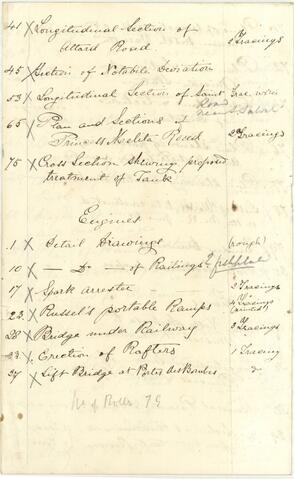 41 X Longitudinal Section of
Attard Road 2 Tracings
45 X Section of Notabile Deviation
53 X Longitudinal Section of Saint
Road
near S. Salvat
65 X Plan and Sections of
Princess Melita Road 2 Tracings
75 X Cross Section Shewing proposed
treatment of Tank
Engines
1 X Detail Drawings (rough)
10 X — Do — of Railings & fishplate
17 X Spark arrester 2 Tracings
23 X Russel's portable Ramps 4 Tracings
28 X Bridge under Railway 3 Tracings
X Erection of Rafters 1 Tracing
37 X Lift Bridge at Portes des Bombes
No of Rolls 79